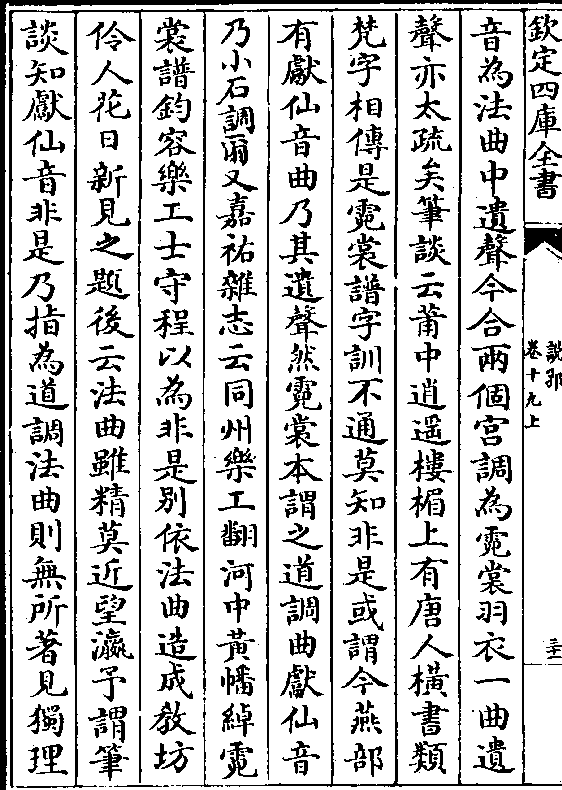 欽定四庫全書
說郛
卷十九上
音為法曲中遺聲今合兩個宮調為霓裳羽衣一曲遺
聲亦太疏矣筆談云莆中逍遥樓楣上有唐人橫書類
梵字相傳是霓裳譜字訓不通莫知非是或謂今燕部
有獻仙音曲乃其遺聲然霓裳本謂之道調曲獻仙音
乃小石調爾又嘉祐雜志云同州樂工翻河中黃幡綽霓
裳譜鈞容樂工士守程以為非是別依法曲造成教坊
伶人花日新見之題後云法曲雖精莫近望瀛予謂筆
談知獻仙音非是乃指為道調法曲則無所著見獨理